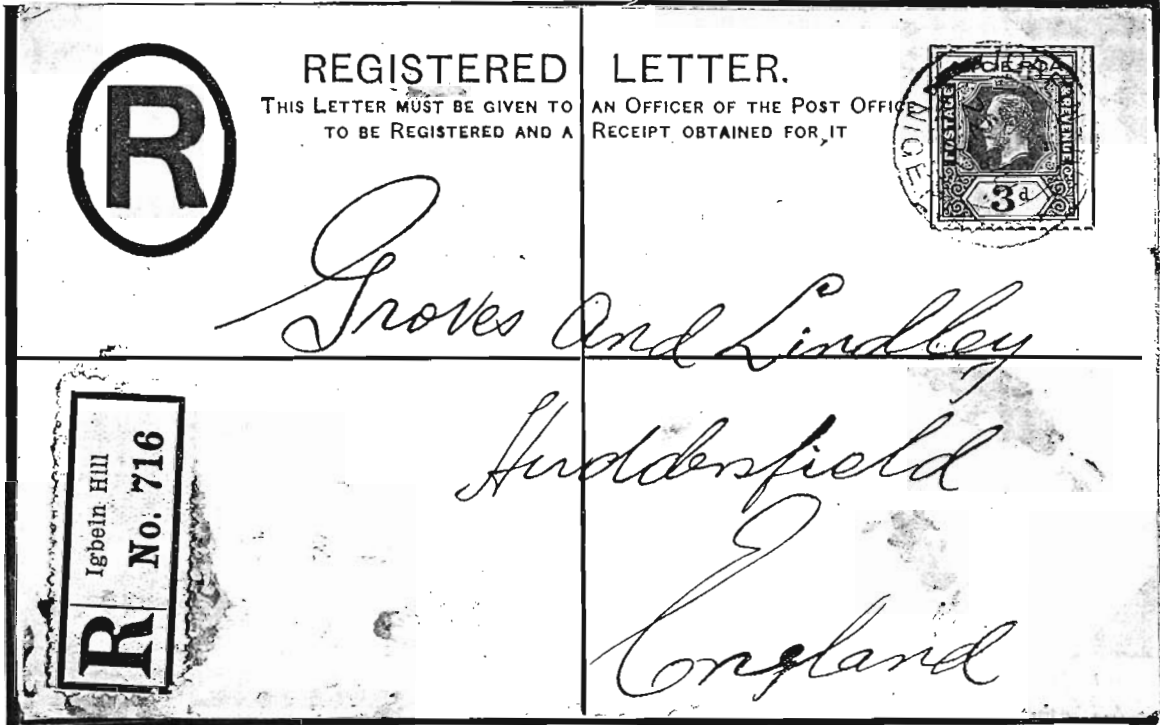 R
REGISTERED LETTER.
THIS LETTER MUST BE GIVEN TO AN OFFICER OF THE POST OFFICE
TO BE REGISTERED AND A RECEIPT OBTAINED FOR IT
NIGERIA
POSTAGE & REVENUE
3d
Groves And Lindley
Huddersfield
England
R Igbein Hill
No. 716